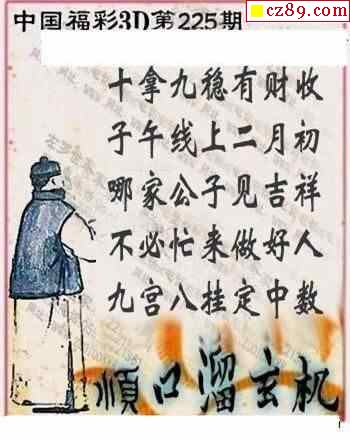 cz89.com
中国福彩3D第225期
十拿九稳有财收
子午线上二月初
哪家公子见吉祥
不必忙来做好人
九宫八挂定中数
順口溜玄机